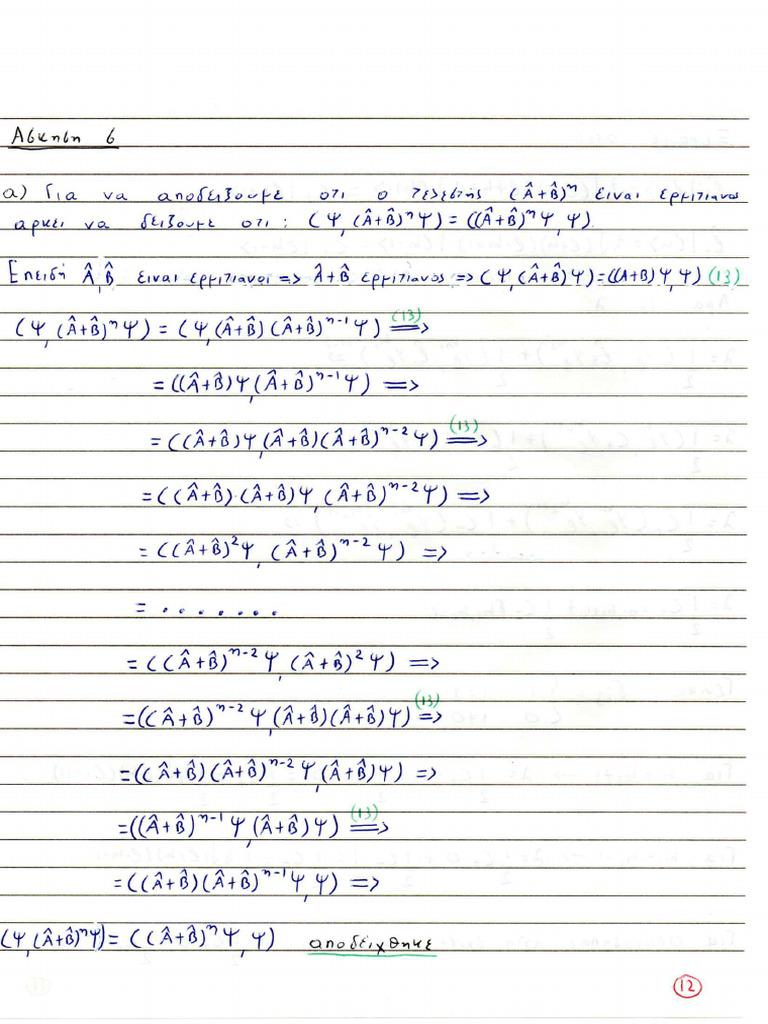 Άσκηση 6
α) Για να αποδείξουμε οτι ο τελεστής (Â+B̂)ⁿ είναι ερμιτιανος
αρκει να δείξουμε οτι: (Ψ, (Â+B̂)ⁿΨ) = ((Â+B̂)ⁿΨ, Ψ).
Επειδή Â, B̂ ειναι ερμιτιανοι => Â+B̂ ερμιτιανος => (Ψ, (Â+B̂)Ψ) = ((A+B)Ψ, Ψ) (13)
(Ψ, (Â+B̂)ⁿΨ) = (Ψ, (Â+B̂)(Â+B̂)ⁿ⁻¹Ψ) (13) =>
= ((Â+B̂)Ψ, (Â+B̂)ⁿ⁻¹Ψ) =>
= ((Â+B̂)Ψ, (Â+B̂)(Â+B̂)ⁿ⁻²Ψ) (13) =>
= ((Â+B̂)·(Â+B̂)Ψ, (Â+B̂)ⁿ⁻²Ψ) =>
= ((Â+B̂)²Ψ, (Â+B̂)ⁿ⁻²Ψ) =>
= ........
= ((Â+B̂)ⁿ⁻²Ψ, (Â+B̂)²Ψ) =>
= ((Â+B̂)ⁿ⁻²Ψ, (Â+B̂)(Â+B̂)Ψ) (13) =>
= ((Â+B̂)(Â+B̂)ⁿ⁻²Ψ, (Â+B̂)Ψ) =>
= ((Â+B̂)ⁿ⁻¹Ψ, (Â+B̂)Ψ) (13) =>
= ((Â+B̂)(Â+B̂)ⁿ⁻¹Ψ, Ψ) =>
(Ψ, (Â+B̂)ⁿΨ) = ((Â+B̂)ⁿΨ, Ψ) αποδείχθηκε
12